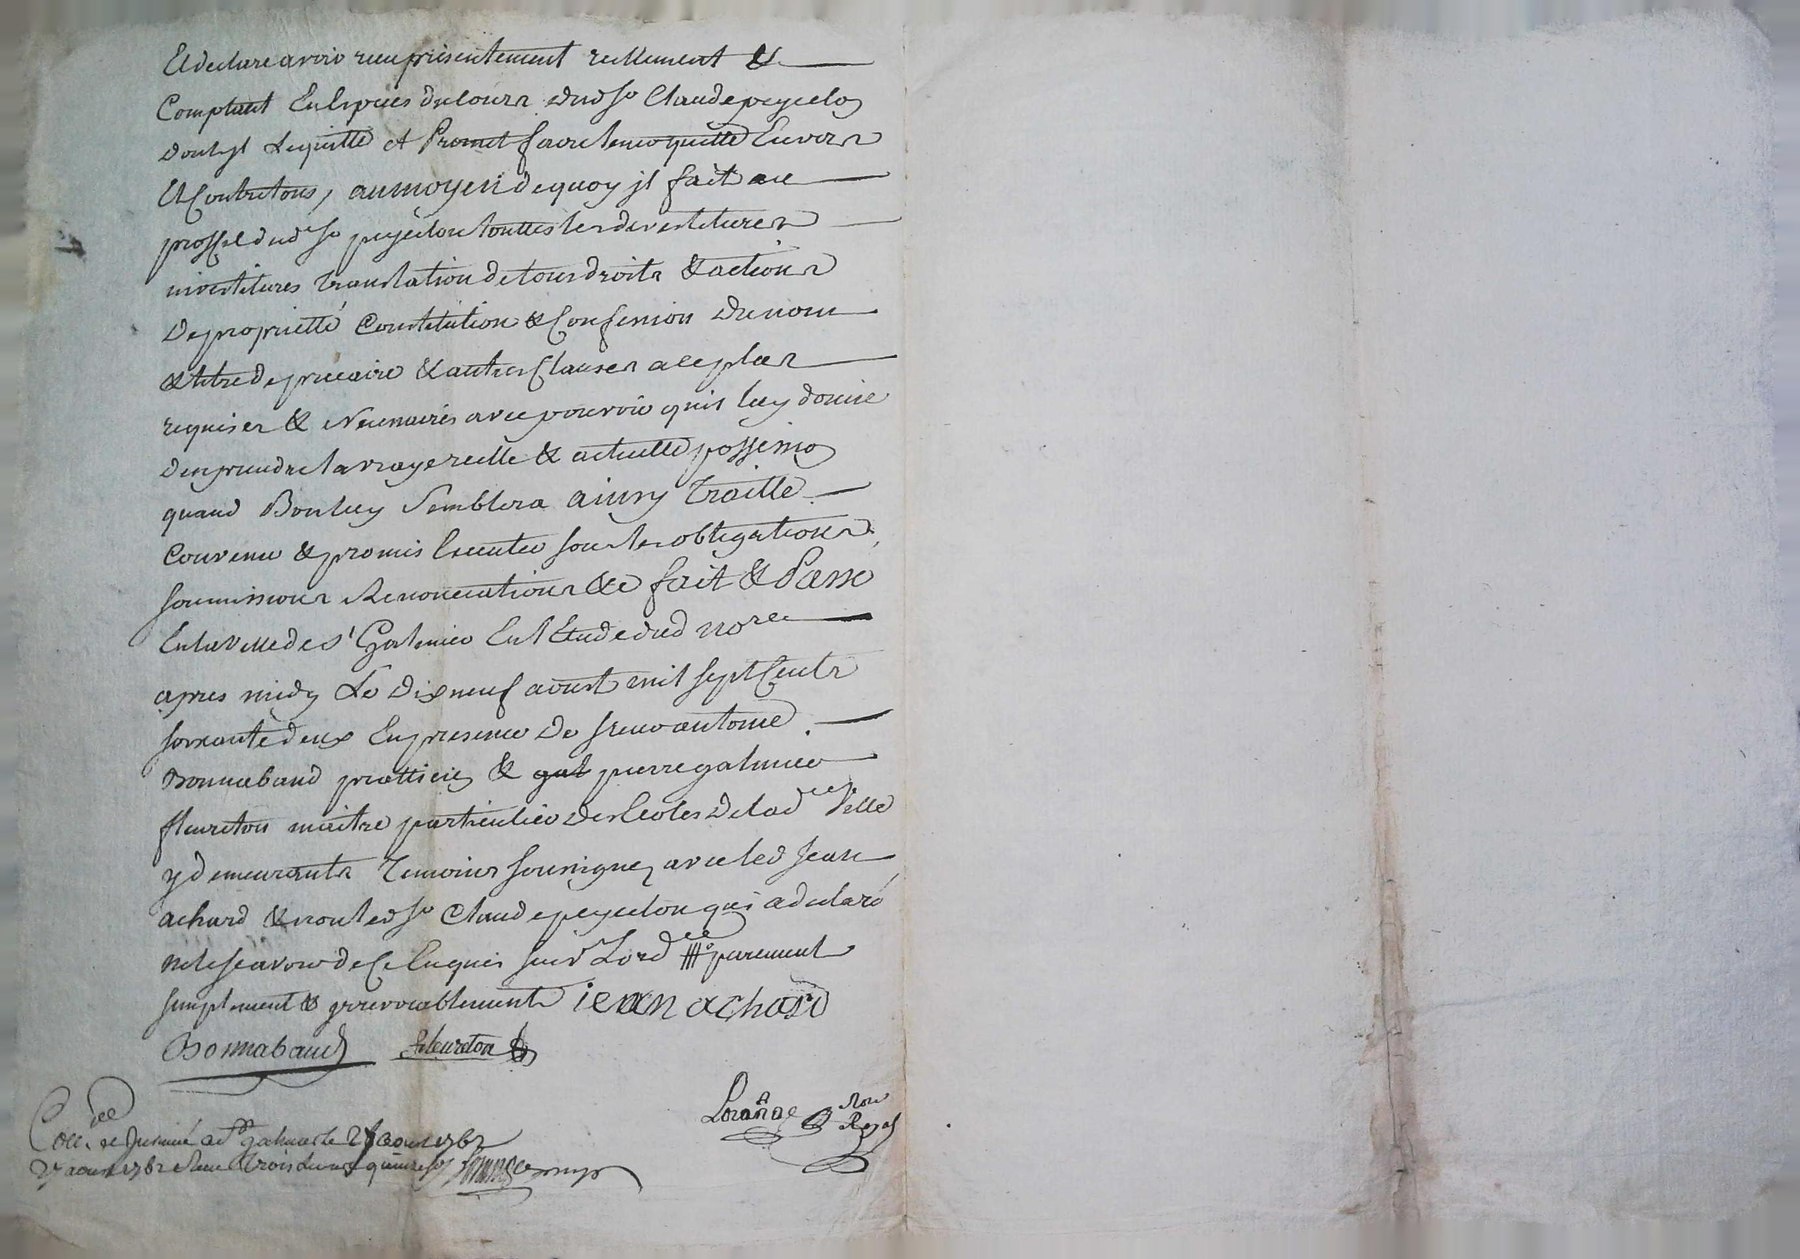 Et declare avoir reçu présentement reellement &
Comptant En Espèces du Cours dud sr Claude peycelon
dont jl Lequitte et Promet faire tenir quitte Envers
Et Contre tous, au moyen de quoy jl fait au
proffit dud sr peycelon touttes les devestitures
investitures Translation de tous droits & actions
De proprietté Constitution & Confession du nom
& titre de precaire & autres Clauses a ce plus
requises & Necessaires avec pouvoir quil luy donne
den prendre la vraye reelle & actuelle possession
quand Bon luy Semblera ainsy Traitté
Convenu & promis Executer sous les obligations,
soumissions Renonciations &c fait & Passé
En la Ville de st Galmier En l Etude dud nore
apres midy Le Dix neuf aoust mil sept Cents
soixante deux En presence De sieur antoine
Bonnabaud pratticien & pierre galmier
fleureton maitre particulier des Ecoles De lad Ville
y demeurants Temoins soussignez avec led jean
achard & non led sr Claude peycelon qui a declaré
ne le sçavoir de Ce Enquis purement
simplement & yrrevocablement jean achard
Bonnabaud fleureton
Lorange Nore
Royal
27 aout 1762 Reçu Trois Livres